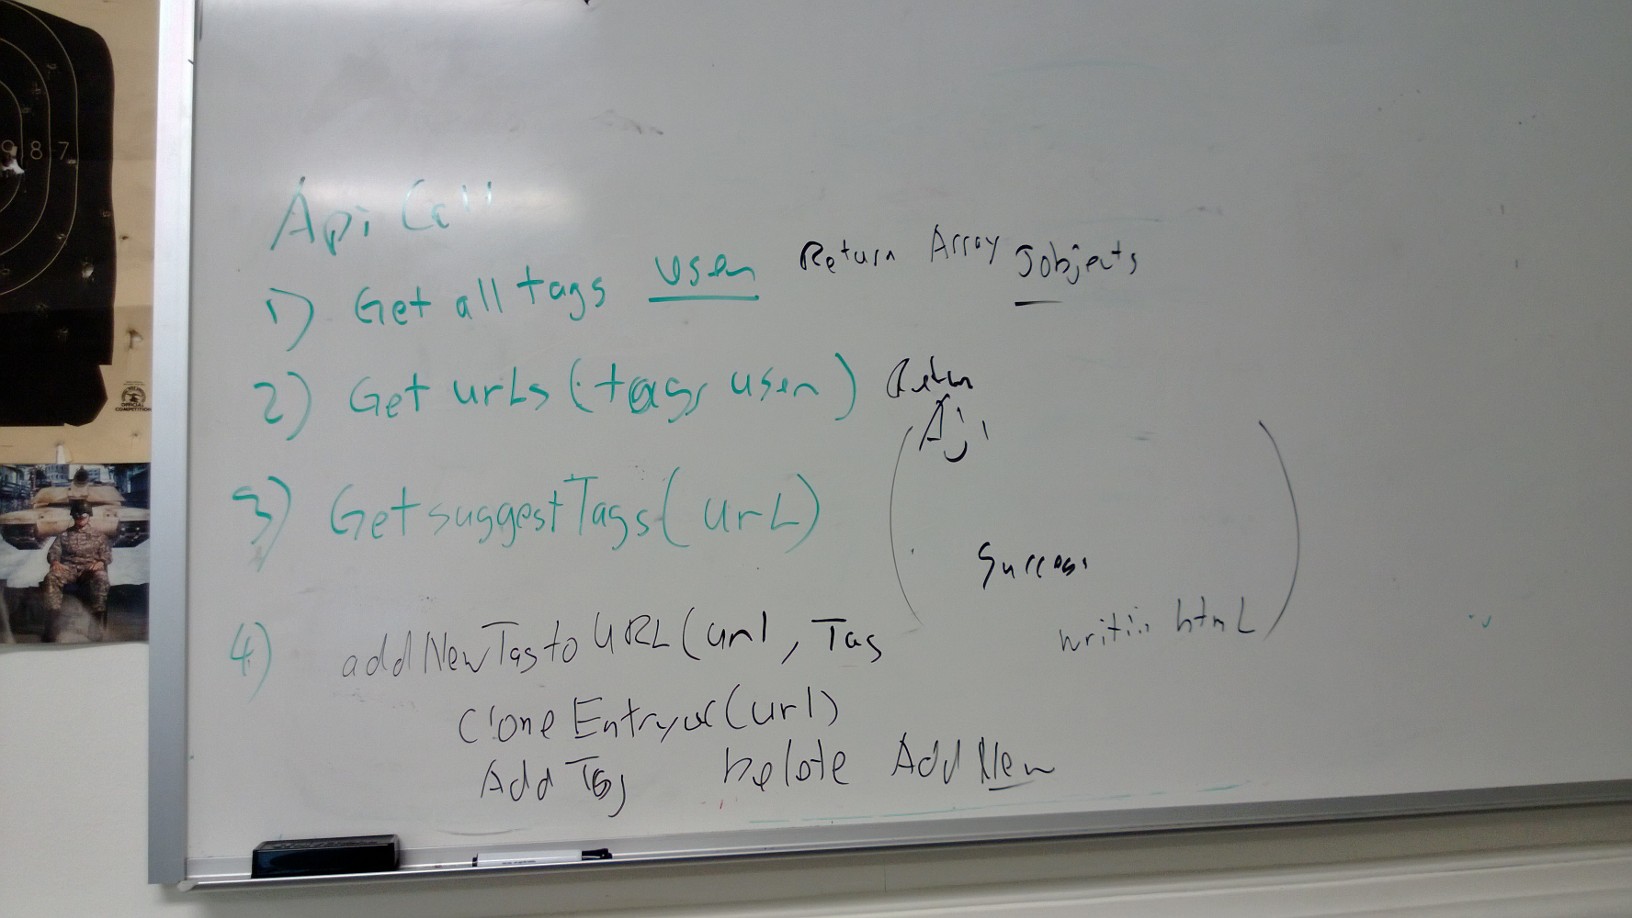 Api Call
1) Get all tags user Return Array Jobjects
2) Get urLs (tags, user) Return
3) Get suggestTags (urL)
Success
4) addNewTagtoURL(url, Tag
html
CloneEntry (url)
Add Tag Delete Add New
9 8 7